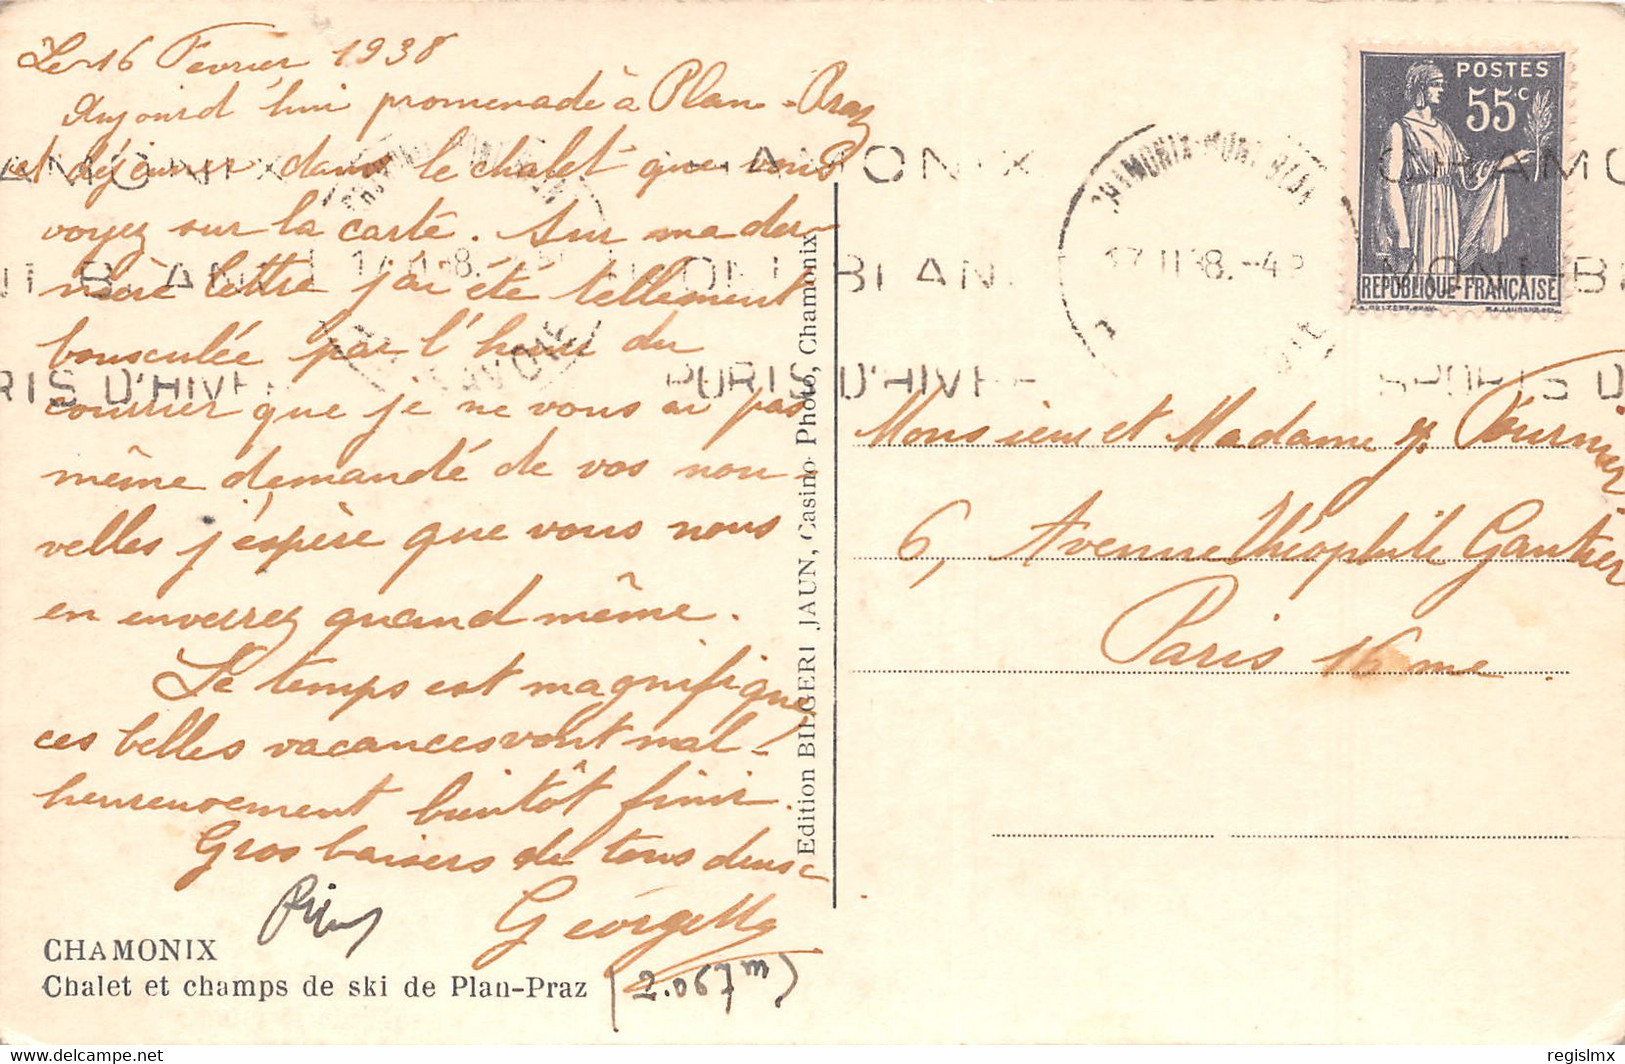 Le 16 Fevrier 1938
Aujourd'hui promenade à Plan-Praz
et déjeuner dans le chalet que vous
voyez sur la carte. Sur ma der-
nière lettre j'ai été tellement
bousculée par l'heure du
courrier que je ne vous ai pas
même demandé de vos nou-
velles j'espère que vous nous
en enverrez quand même.
Le temps est magnifique
ces belles vacances vont mal-
heureusement bientôt finir.
Gros baisers de tous deux
Georgette
CHAMONIX
Chalet et champs de ski de Plan-Praz
(2.067 m)
Edition BILGERI JAUN, Casino Photo, Chamonix
POSTES
55c
REPUBLIQUE-FRANÇAISE
CHAMONIX-MONT-BLANC
17 II 38.
CHAMONIX
MONT-BLANC
SPORTS D'HIVER
Monsieur et Madame J. Fournier
6, Avenue Théophile Gautier
Paris 16me
delcampe.net
regislmx